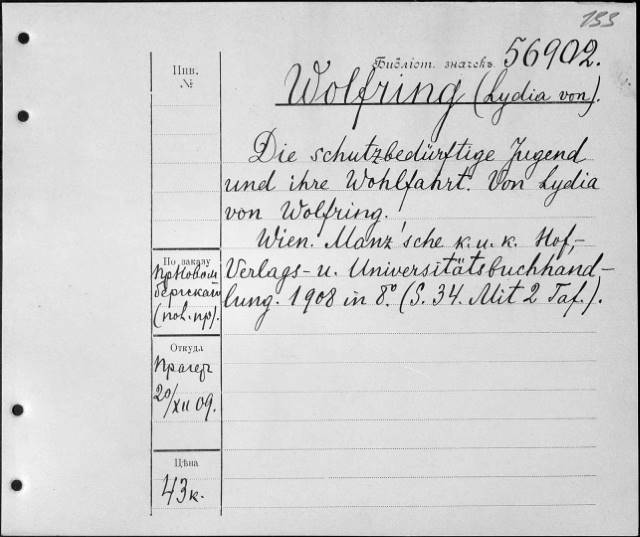 133
Библіот. значекъ 56902.
Wolfring (Lydia von).
Die schutzbedürftige Jugend
und ihre Wohlfahrt. Von Lydia
von Wolfring.
Wien. Manz'sche k. u. k. Hof-
Verlags- u. Universitätsbuchhand-
lung. 1908 in 8°. (S. 34. Mit 2 Taf.).
Инв.
№
По заказу
Откуда
20/XII 09.
Цѣна
43 к.